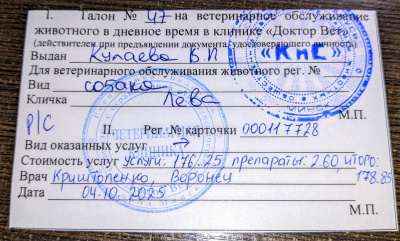 I. Талон № 47 на ветеринарное обслуживание
животного в дневное время в клинике «Доктор Вет»
(действителен при предъявлении документа, удостоверяющего личность)
Выдан Кулаева В.П
Для ветеринарного обслуживания животного рег. №
Вид собака
Кличка Лёва
М.П.
«КиС»
P/C
II. Рег. № карточки D00117728
ВЕТЕРИНАРНАЯ
Вид оказанных услуг
Стоимость услуг услуги: 176.25 препараты: 2.60, итого: 178.85
Врач Криштопенко, Воронец
Дата 04.10.2025
М.П.